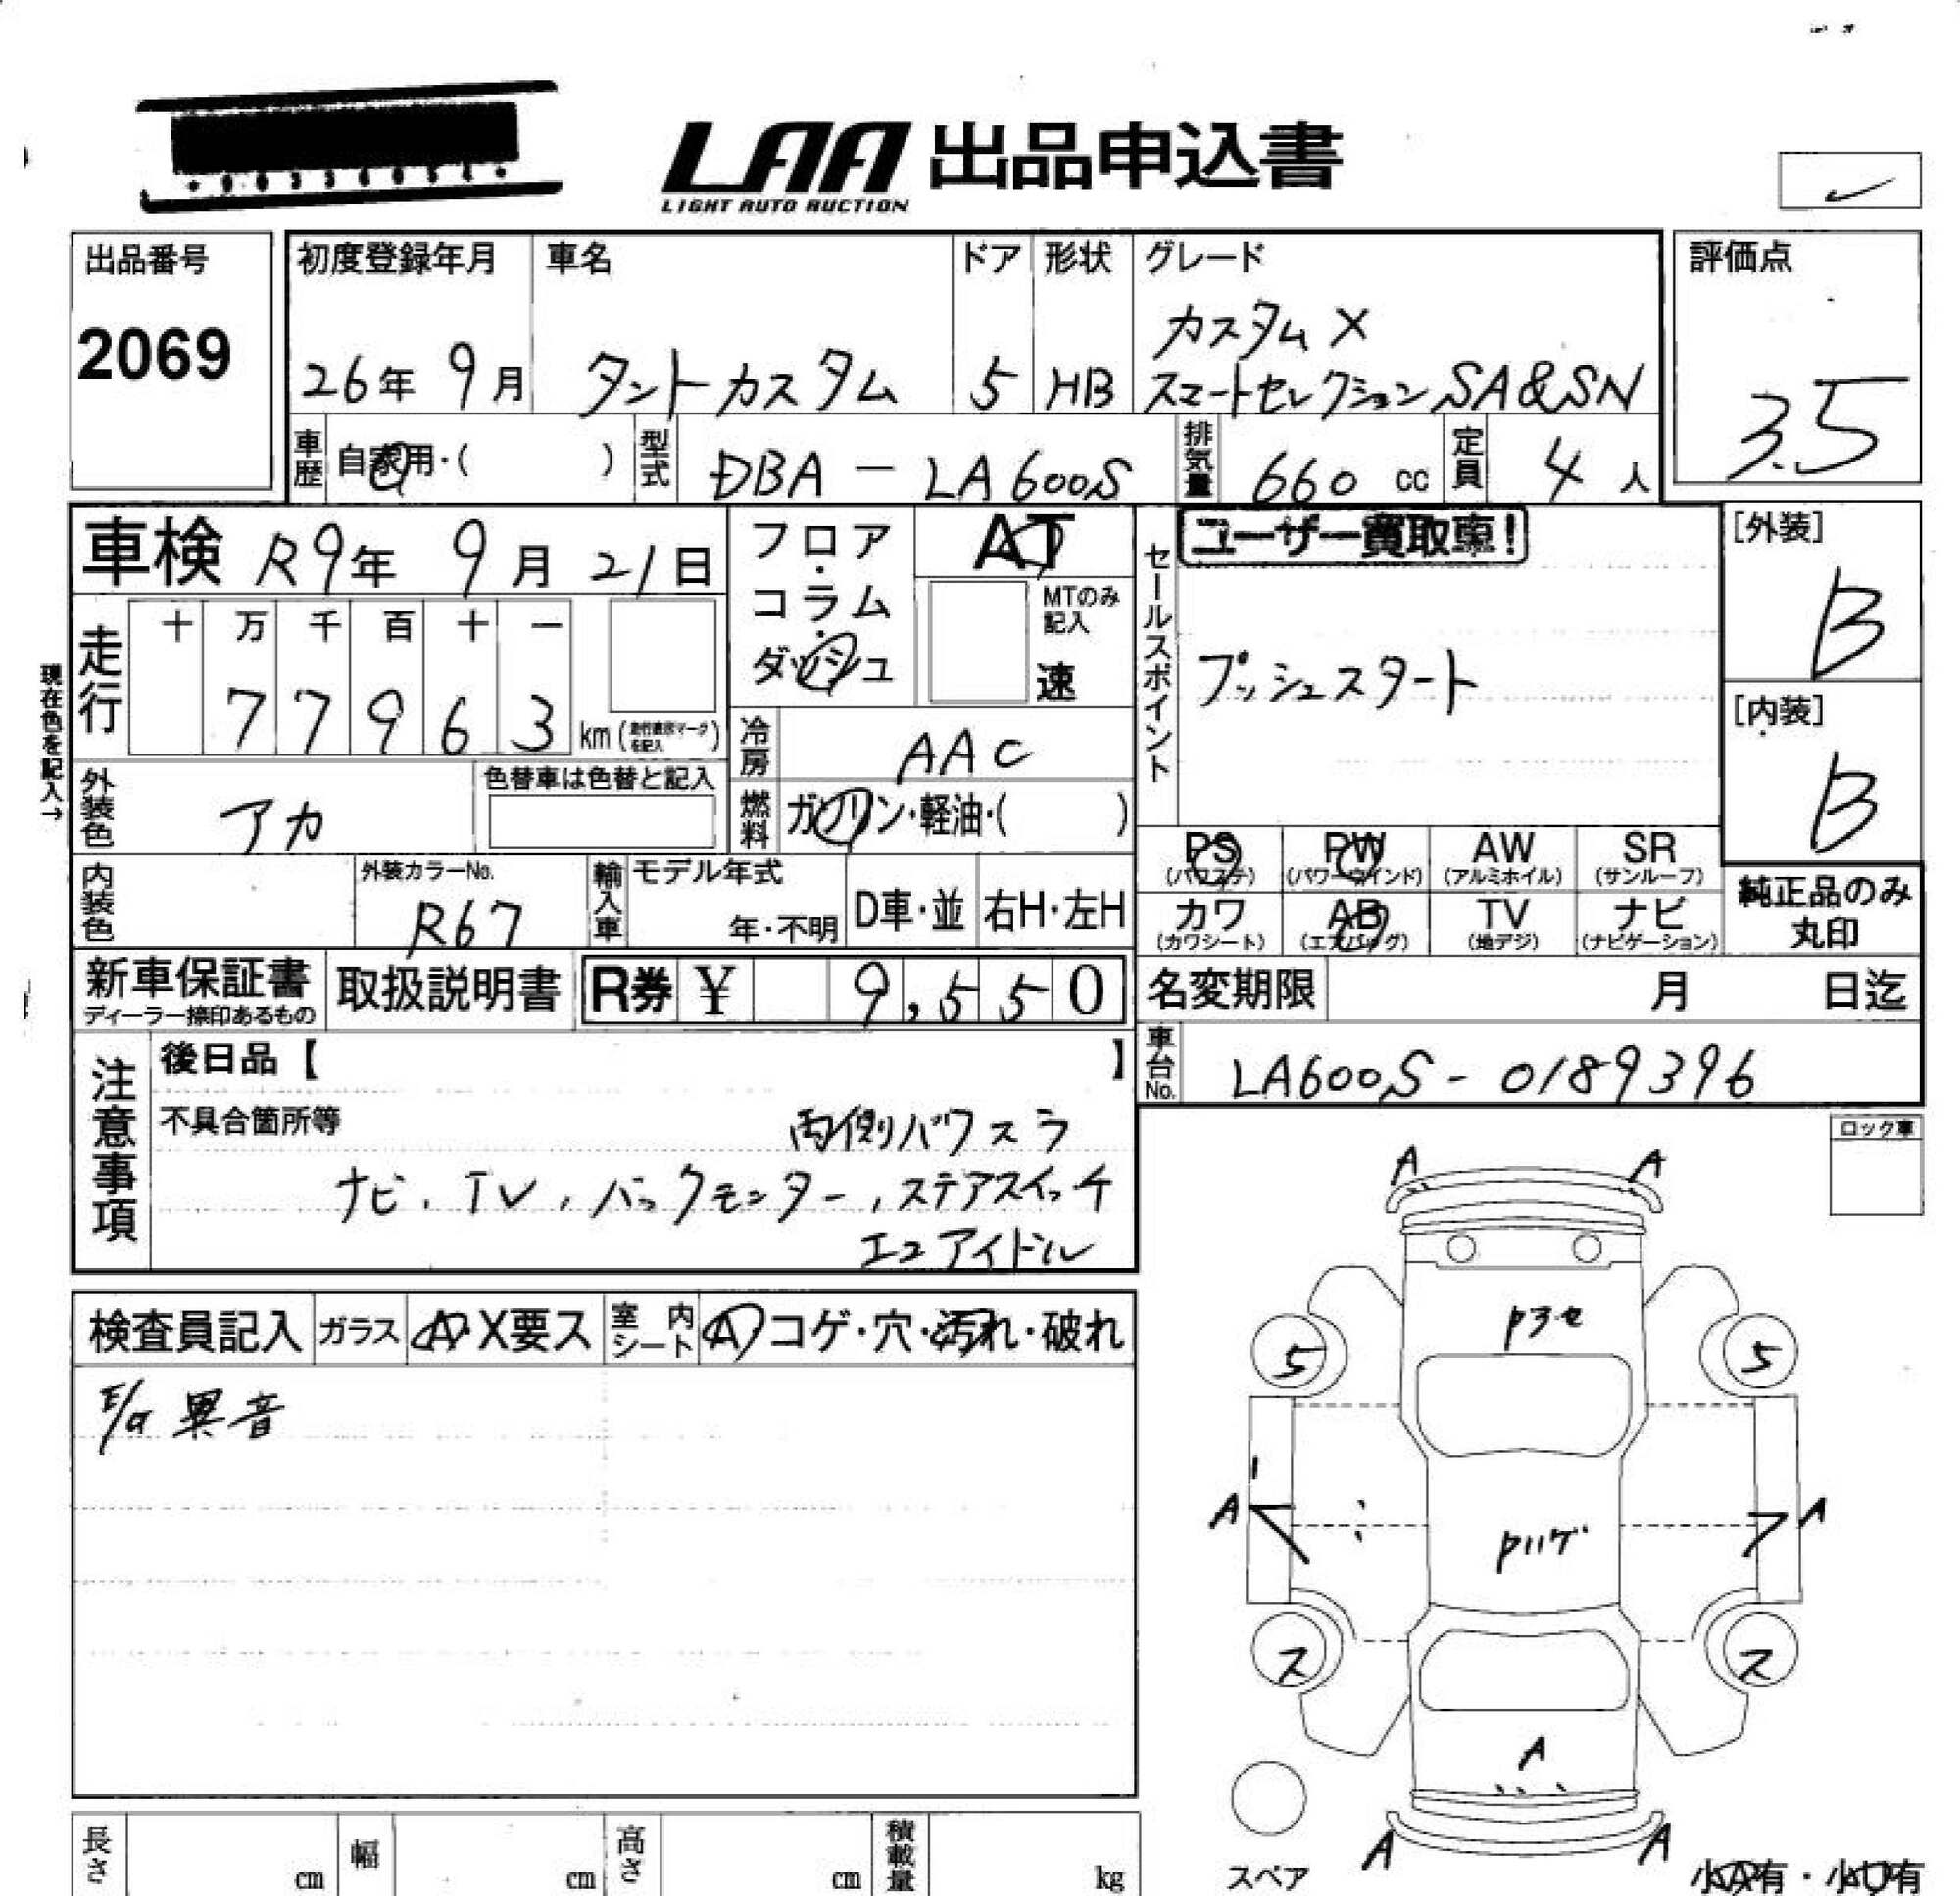 LAA 出品申込書
LIGHT AUTO AUCTION
出品番号
2069
初度登録年月
26年 9月
車名
タントカスタム
ドア
5
形状
HB
グレード
カスタムX
スマートセレクションSA&SN
評価点
3.5
車歴
自家用・( )
型式
DBA - LA600S
排気量
660 cc
定員
4 人
車検 R9年 9月 21日
走行
十 万 千 百 十 一
7 7 9 6 3 km
現在色を記入→
外装色
アカ
色替車は色替と記入
内装色
外装カラーNo.
R67
フロア・コラム・ダッシュ
AT
MTのみ記入
速
冷房
AAC
燃料
ガソリン・軽油・( )
輸入車
モデル年式
年・不明
D車・並
右H・左H
セールスポイント
ユーザー買取車!
プッシュスタート
[外装]
B
[内装]
B
PS (パワステ)
PW (パワーウインド)
AW (アルミホイル)
SR (サンルーフ)
カワ (カワシート)
AB (エアバッグ)
TV (地デジ)
ナビ (ナビゲーション)
純正品のみ
丸印
新車保証書
ディーラー捺印あるもの
取扱説明書
R券 ¥ 9,550
名変期限 月 日迄
車台No.
LA600S-0189396
注意事項
後日品【 】
不具合箇所等
両側パワスラ
ナビ、TV、バックモニター、ステアスイッチ
エコアイドル
ロック車
検査員記入
ガラス
A・X要ス
室内シート
A コゲ・穴・汚れ・破れ
E/G 異音
A A
5 5
A A
ス ス
A
A A
スペア
小A有・小U有
長さ cm
幅 cm
高さ cm
積載量 kg